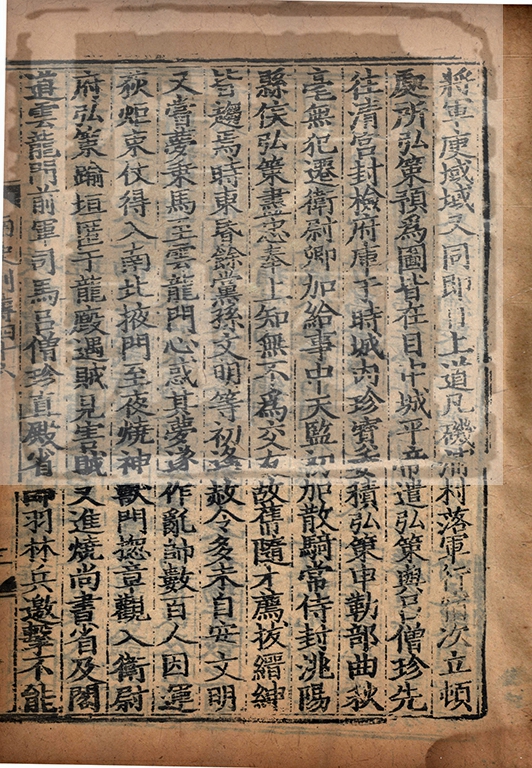 將軍庾域域又同即日上道凡磯浦村落軍行宿次立頓
處所弘策預爲圖皆在目中城平帝遣弘策與呂僧珍先
往清宮封檢府庫于時城內珍寶委積弘策申勒部曲秋
毫無犯遷衛尉卿加給事中天監初加散騎常侍封洮陽
縣侯弘策盡忠奉上知無不爲交友故舊隨才薦拔縉紳
皆趨焉時東昏餘黨孫文明等初逢赦令多未自安文明
又嘗夢乗馬至雲龍門心惑其夢遂作亂帥數百人因運
荻炬束仗得入南北掖門至夜燒神獸門揔章觀入衛尉
府弘策踰垣匿于龍廐遇賊見害賊又進燒尚書省及閣
道雲龍門前軍司馬呂僧珍直殿省帥羽林兵邀擊不能